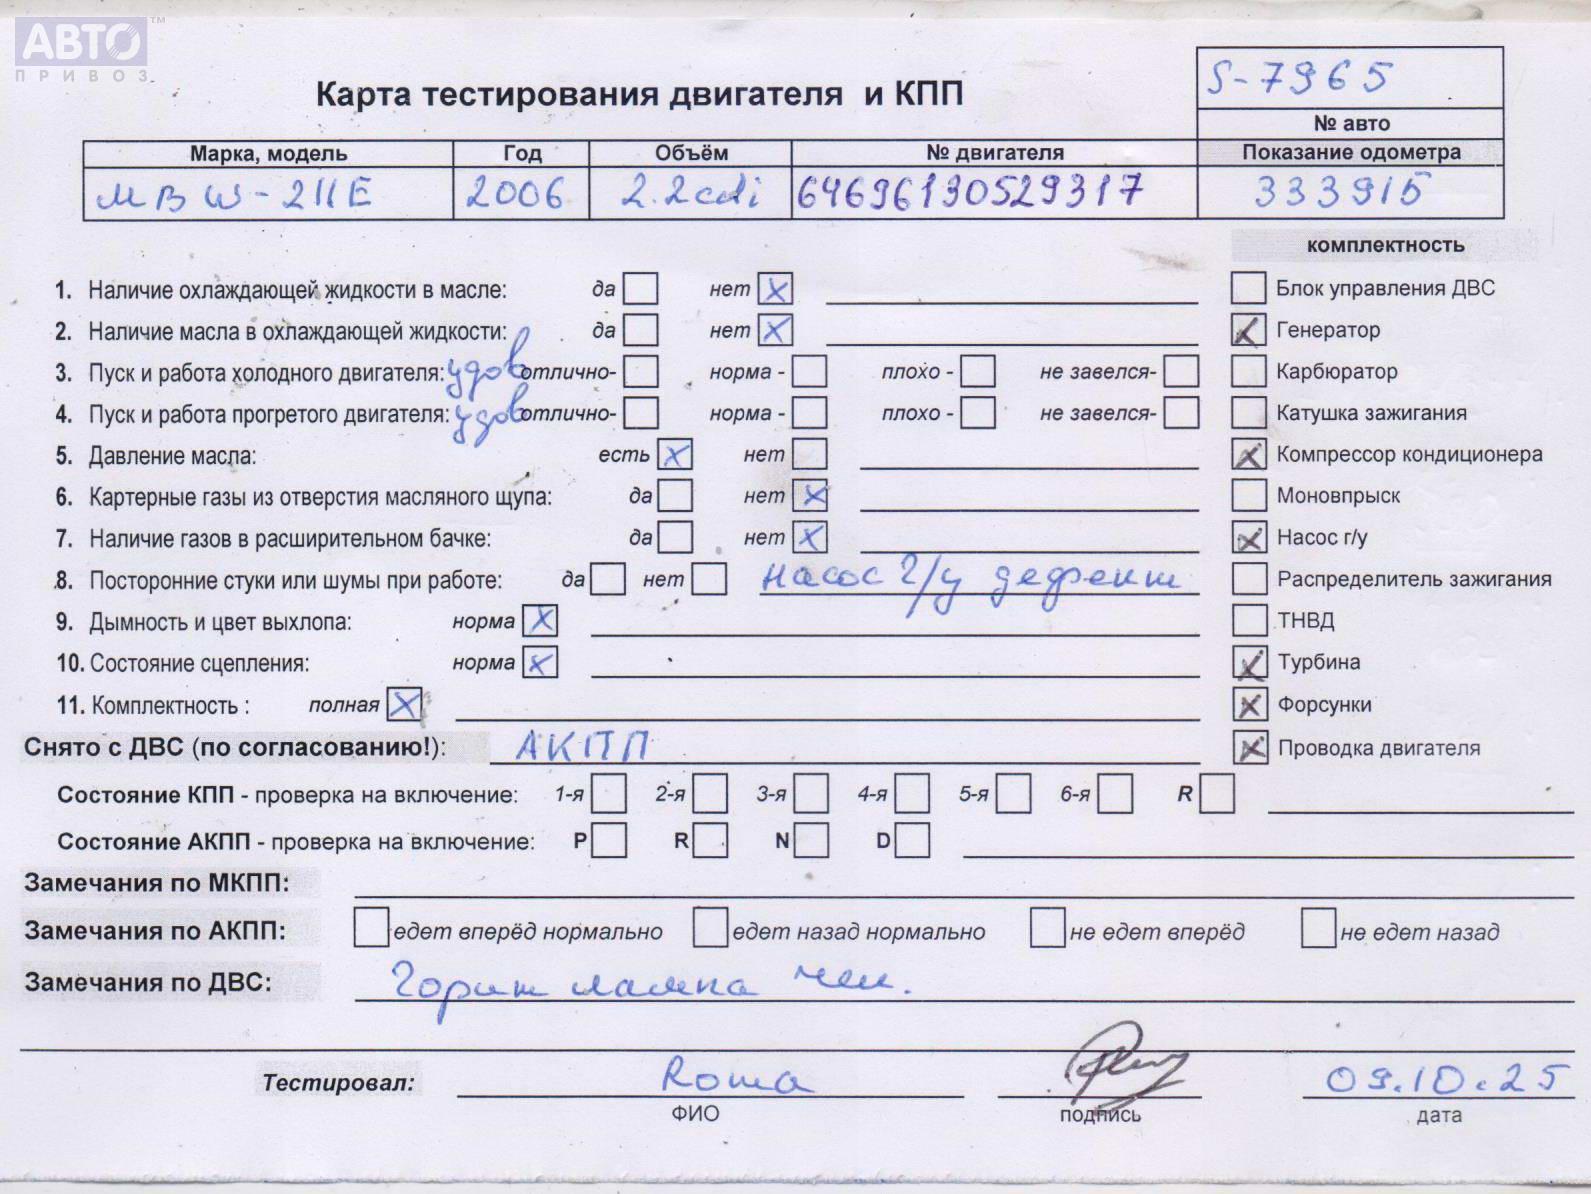 АВТО™
ПРИВОЗ
Карта тестирования двигателя и КПП
S-7965
№ авто
Марка, модель Год Объём № двигателя Показание одометра
MB W-211E 2006 2.2cdi 64696130529317 333915
комплектность
1. Наличие охлаждающей жидкости в масле: да нет X Блок управления ДВС
2. Наличие масла в охлаждающей жидкости: да нет X X Генератор
3. Пуск и работа холодного двигателя: удов отлично- норма - плохо - не завелся- Карбюратор
4. Пуск и работа прогретого двигателя: удов отлично- норма - плохо - не завелся- Катушка зажигания
5. Давление масла: есть X нет X Компрессор кондиционера
6. Картерные газы из отверстия масляного щупа: да нет X Моновпрыск
7. Наличие газов в расширительном бачке: да нет X X Насос г/у
8. Посторонние стуки или шумы при работе: да нет насос г/у дефект Распределитель зажигания
9. Дымность и цвет выхлопа: норма X ТНВД
10. Состояние сцепления: норма X X Турбина
11. Комплектность : полная X X Форсунки
Снято с ДВС (по согласованию!): АКПП X Проводка двигателя
Состояние КПП - проверка на включение: 1-я 2-я 3-я 4-я 5-я 6-я R
Состояние АКПП - проверка на включение: P R N D
Замечания по МКПП:
Замечания по АКПП: едет вперёд нормально едет назад нормально не едет вперёд не едет назад
Замечания по ДВС: Горит лампа чек.
Тестировал: Roma 09.10.25
ФИО подпись дата